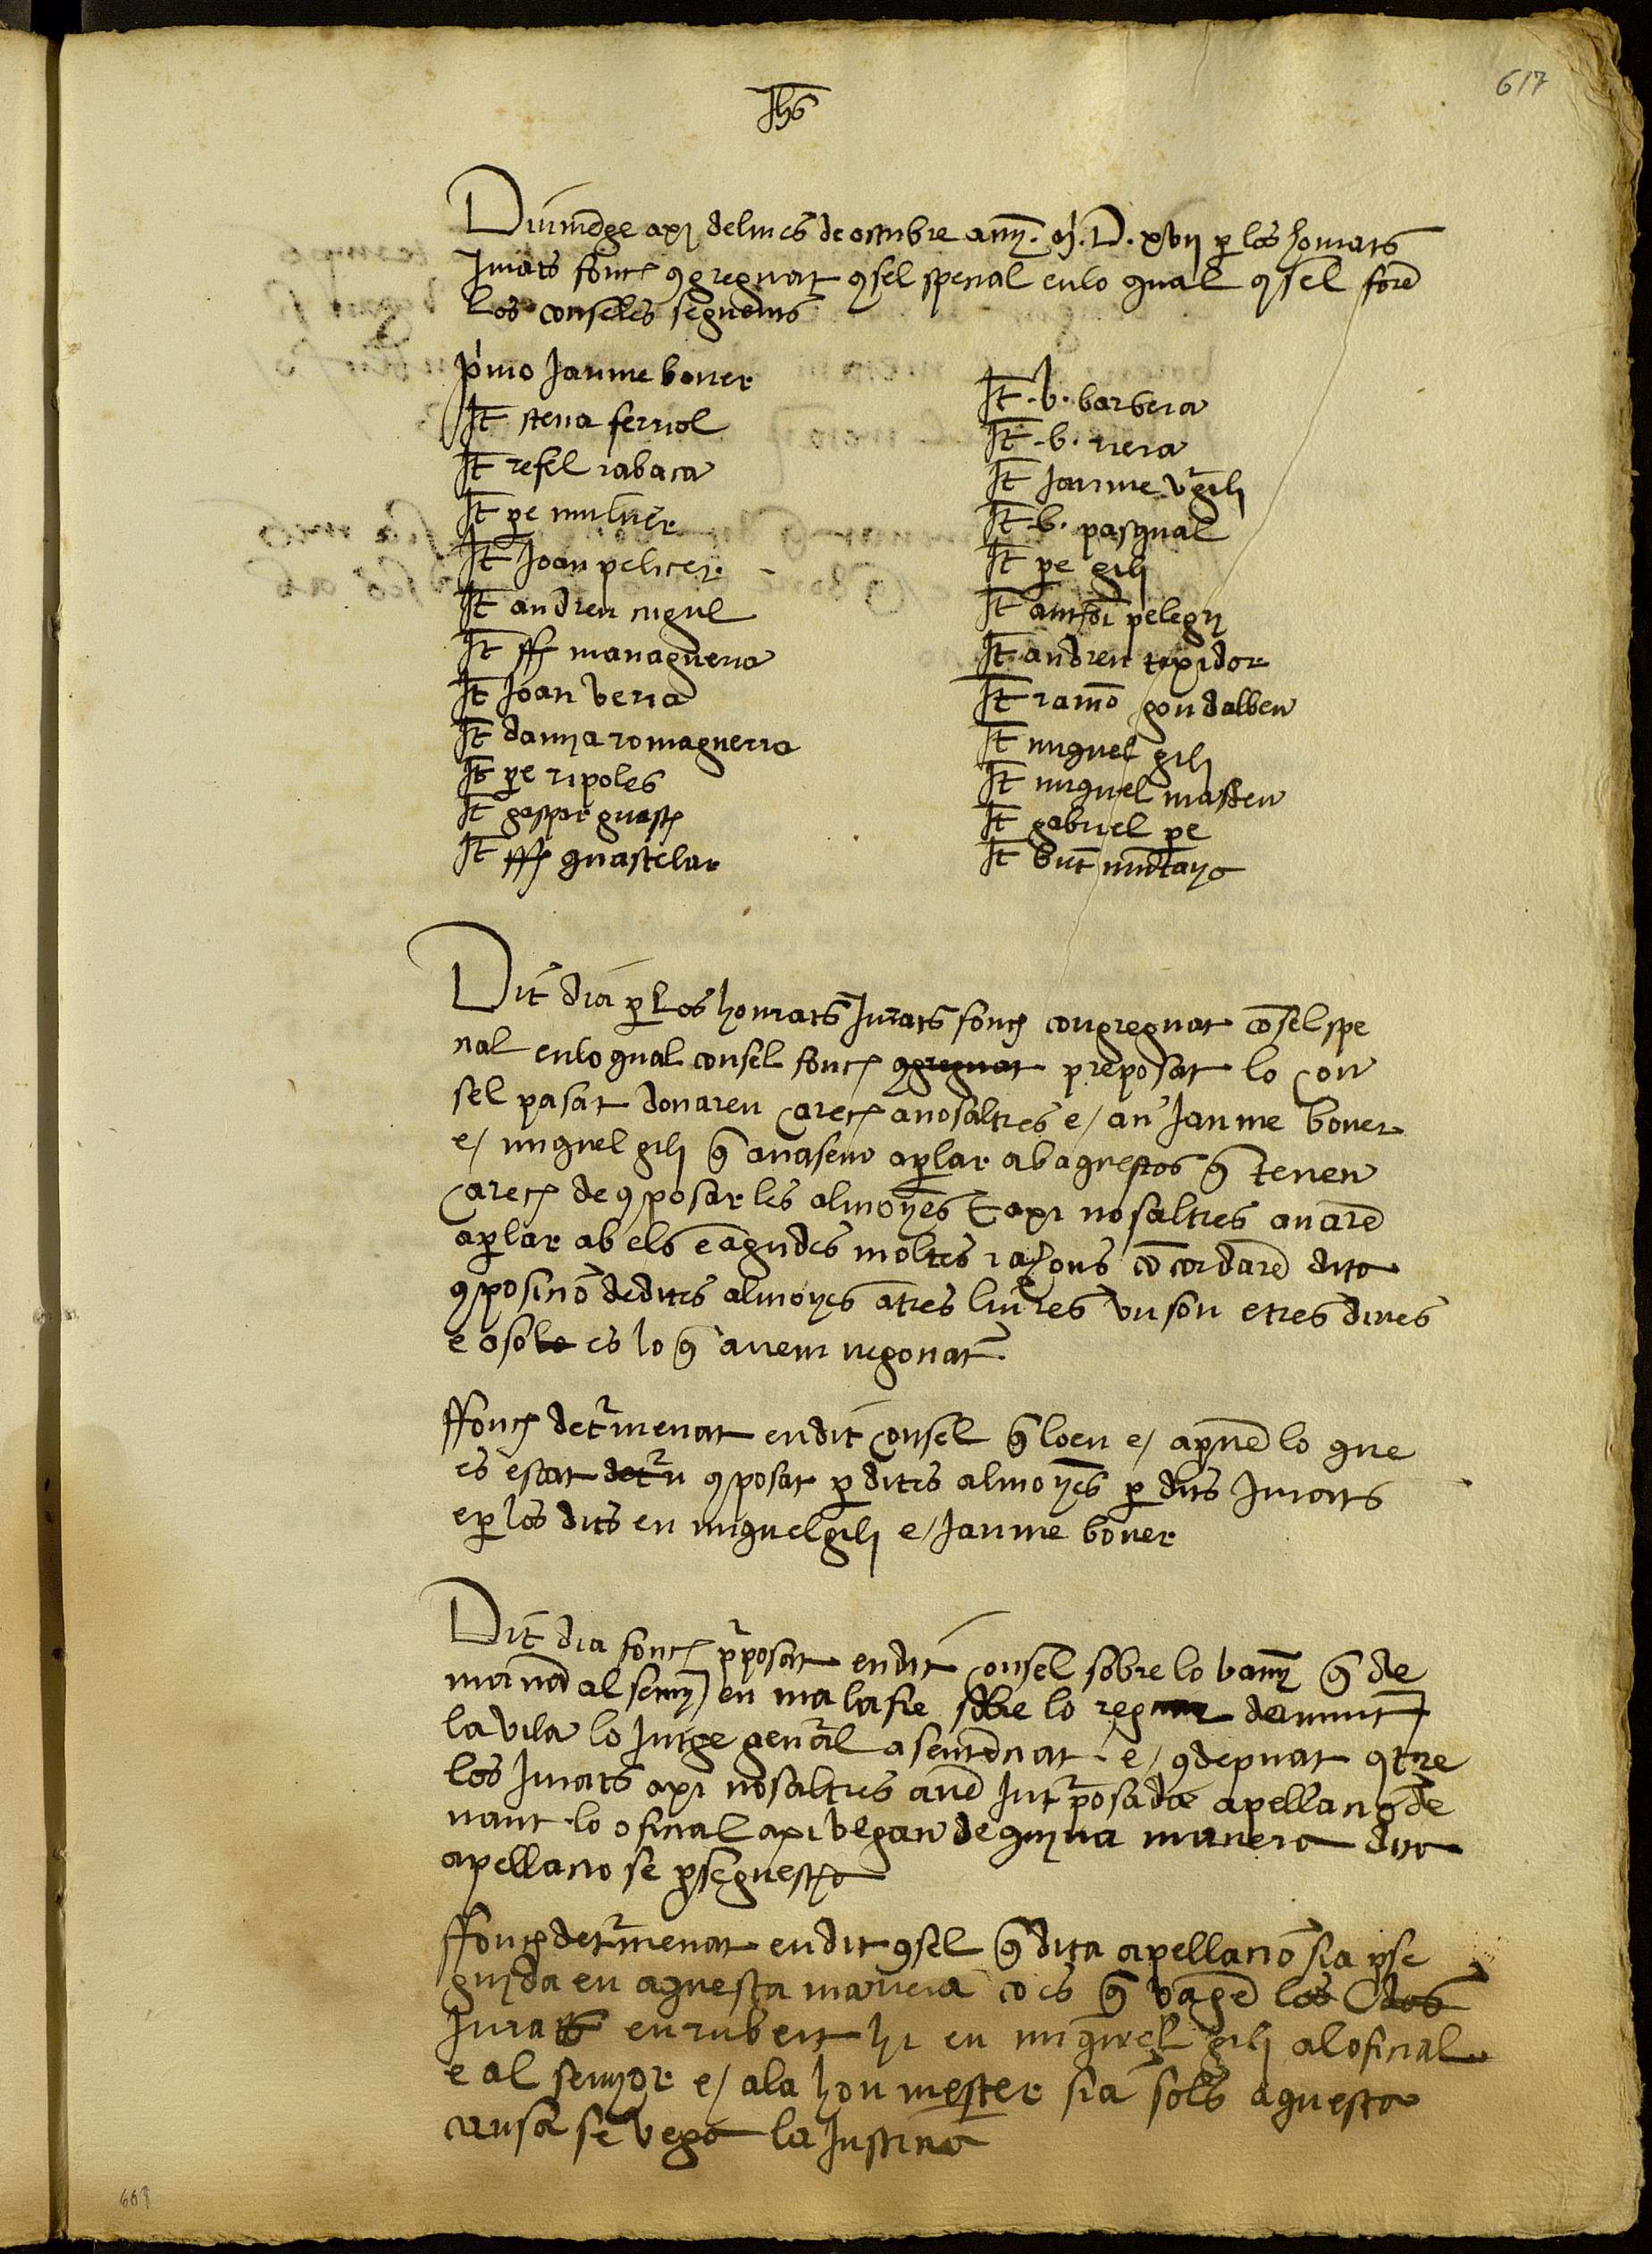 617
Jhs
Diumēge a xj del mes de octubre any . M . D . xvij p los honrats
Jurats fonch ɔgreguat ɔsel special en lo qual ɔsel forē
los conselēs seguents
p'mo Jaume bover
It steva ferriol
It refel rabaca
It pe muluer
It Joan pelicer
It andreu cugul
It ff managuera
It Joan veria
It damya romaguerra
It pe ripoles
It gaspar guasch
It ff guastelar
It . b . barbera
It . b . riera
It Jaume v'gili
It . b . pasqual
It pe gili
It antōi pelegrj
It andreu texidor
It ramō gondalbeu
It miguel gili
It miguel masteu
It gabriel pe
It bnt mūtanyo
Dit dia p los honrats Jurats fonch congreguat cōsel spe
cial en lo qual consel fonch ɔgreguat preposat lo con
sel pasat donaren carech a nosaltres e / an Jaume bover
e / miguel gili q̄ anasem a plar ab aquestos q̄ tenen
carech de ɔposar les almoynes E axi nosaltres anarē
a plar ab els e agudes moltes rahons cōcordarē dita
ɔposicio de dites almoynes a tres liures vn sou e tres dines
e aso es lo q̄ avem negociat
ffonch det'menat en dit consel q̄ loen e / aprvē lo que
es estat ɔposat p dites almoynes p dits Jurats
e p los dits en miguel gili e / Jaume bover
Dit dia fonch p'posat en dit consel sobre lo bany q̄ de
manā al seny en malafre sobre lo reguar damunt
la vila lo Jutge gen'al a sentēciat e / ɔdepnat ɔtre
los Jurats axi nosaltres avē Int'posada apellacio de
nant lo oficial axi vegan de quyna manera dita
apellacio se pseguescha
ffonch det'menat en dit ɔsel q̄ dita apellacio sia pse
guyda en aquesta manera co es q̄ vagē los dos
Jurats en rubert hi en miguel gili al oficial
e al senyor e / ala hon mester sia sols aquesta
causa se vega la Justicia
669